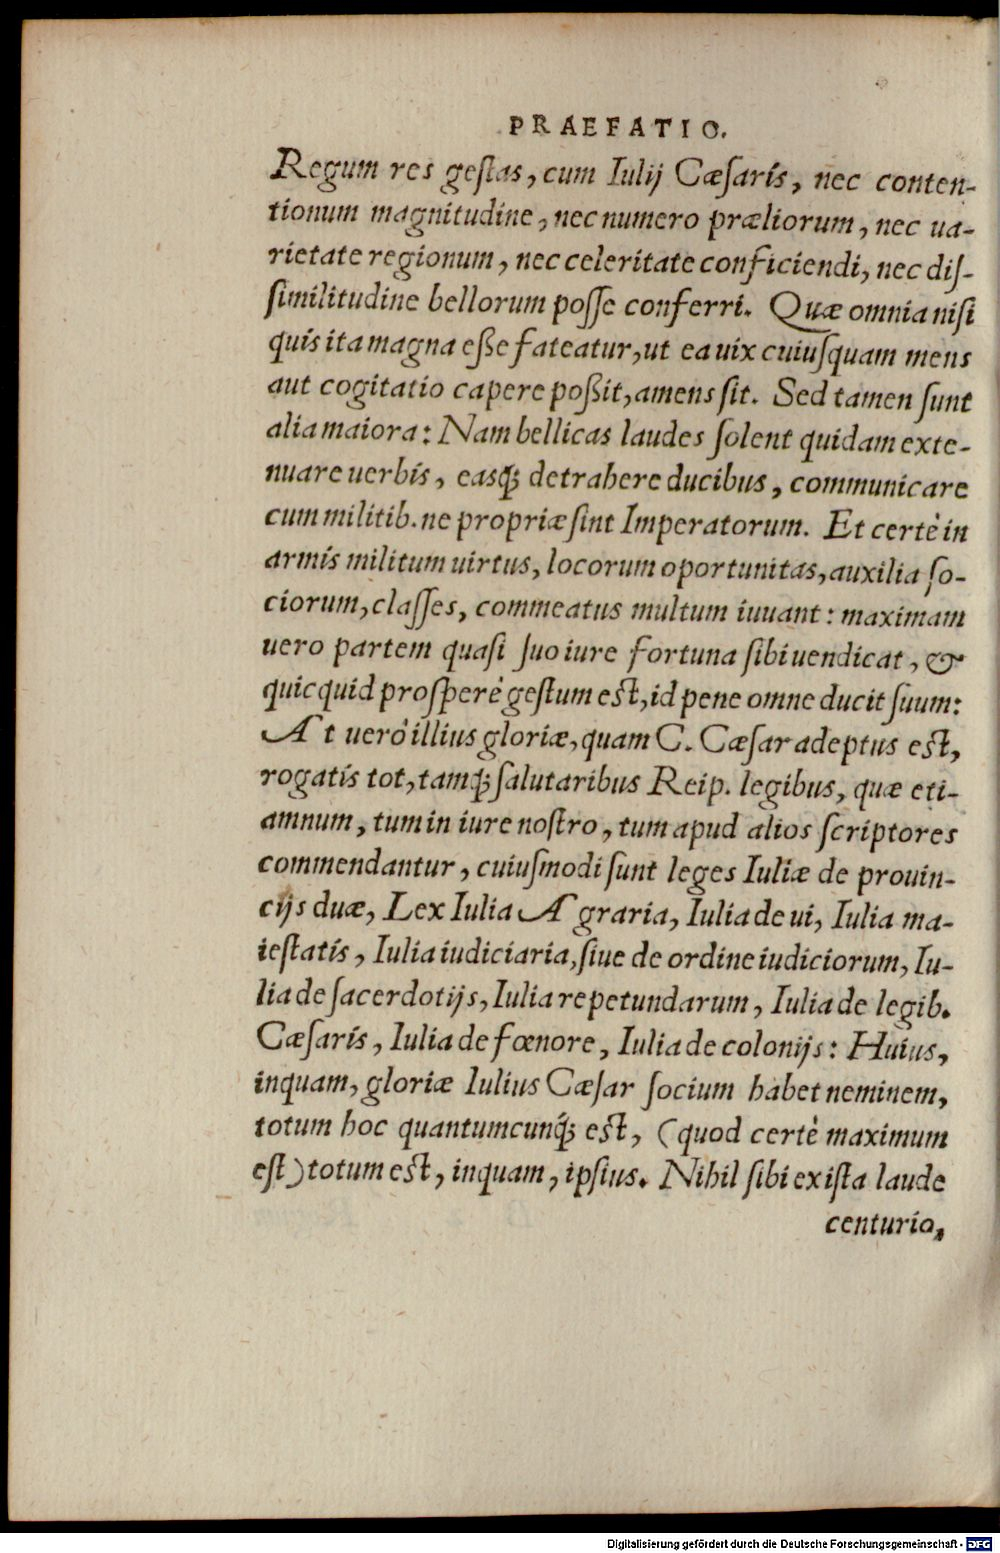 PRAEFATIO.
Regum res geſtas, cum Iulij Cæſaris, nec conten-
tionum magnitudine, nec numero præliorum, nec ua-
rietate regionum, nec celeritate conficiendi, nec diſ-
ſimilitudine bellorum poſſe conferri. Quæ omnia niſi
quis ita magna eſſe fateatur, ut ea uix cuiuſquam mens
aut cogitatio capere poßit, amens ſit. Sed tamen ſunt
alia maiora: Nam bellicas laudes ſolent quidam exte-
nuare uerbis, easq́; detrahere ducibus, communicare
cum militib. ne propriæ ſint Imperatorum. Et certè in
armis militum uirtus, locorum oportunitas, auxilia ſo-
ciorum, claſſes, commeatus multum iuuant: maximam
uero partem quaſi ſuo iure fortuna ſibi uendicat, &
quicquid proſperè geſtum eſt, id pene omne ducit ſuum:
At uerò illius gloriæ, quam C. Cæſar adeptus eſt,
rogatis tot, tamq́; ſalutaribus Reip. legibus, quæ eti-
amnum, tum in iure noſtro, tum apud alios ſcriptores
commendantur, cuiuſmodi ſunt leges Iuliæ de prouin-
cijs duæ, Lex Iulia Agraria, Iulia de ui, Iulia ma-
ieſtatis, Iulia iudiciaria, ſiue de ordine iudiciorum, Iu-
lia de ſacerdotijs, Iulia repetundarum, Iulia de legib.
Cæſaris, Iulia de fœnore, Iulia de colonijs: Huius,
inquam, gloriæ Iulius Cæſar ſocium habet neminem,
totum hoc quantumcunq́; eſt, (quod certè maximum
eſt) totum eſt, inquam, ipſius. Nihil ſibi ex iſta laude
centurio,
Digitalisierung gefördert durch die Deutsche Forschungsgemeinschaft - DFG